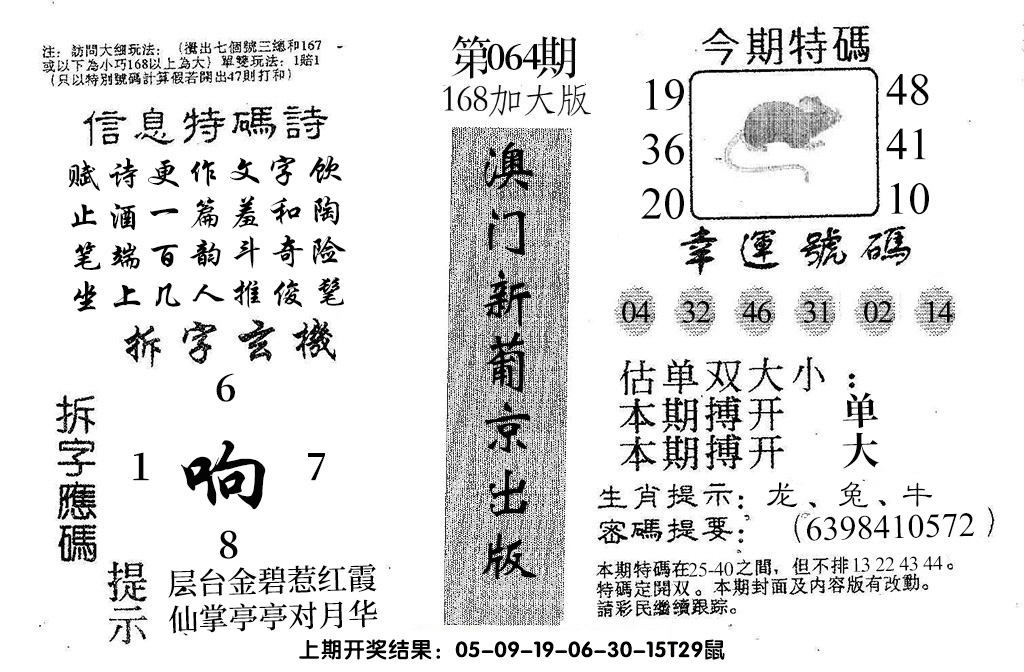 注：訪問大细玩法：（攪出七個號三總和167
或以下為小巧168以上為大）單雙玩法：1賠1
（只以特别號碼計算假若開出47則打和）
信息特碼詩
赋诗更作文字饮
止酒一篇羞和陶
笔端百韵斗奇险
坐上几人推俊髦
拆字玄機
6
1 响 7
8
拆字應碼
提示
层台金碧惹红霞
仙掌亭亭对月华
第064期
168加大版
澳门新葡京出版
今期特碼
19 48
36 41
20 10
幸運號碼
04 32 46 31 02 14
估单双大小：
本期搏开 单
本期搏开 大
生肖提示：龙、兔、牛
密碼提要：（6398410572）
本期特碼在25-40之間，但不排13 22 43 44。
特碼定開双。本期封面及内容版有改動。
請彩民繼續跟踪。
上期开奖结果：05-09-19-06-30-15T29鼠